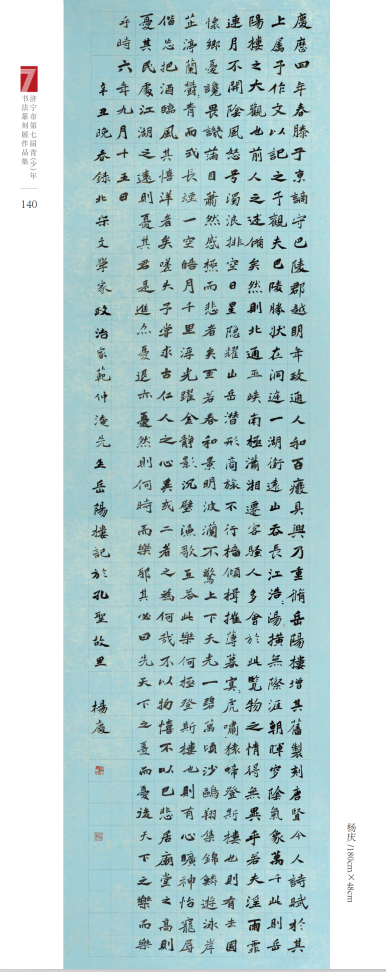 慶曆四年春滕子京謫守巴陵郡越明年政通人和百廢具興乃重脩岳陽樓增其舊製刻唐賢今人詩賦於其
上属予作文以記之予觀夫巴陵勝狀在洞庭一湖銜遠山吞長江浩:湯:橫無際涯朝暉夕陰氣象萬千此則岳
陽樓之大觀也前人之述備矣然則北通巫峽南極瀟湘遷客騷人多會於此覽物之情得無異乎若夫淫雨霏:
連月不開陰風怒号濁浪排空日星隱耀山岳潛形商旅不行檣傾楫摧薄暮冥:虎嘯猿啼登斯樓也則有去國
懷鄉憂讒畏譏滿目蕭然感極而悲者矣至若春和景明波瀾不驚上下天光一碧萬頃沙鷗翔集錦鱗遊泳岸
芷汀蘭鬱:青:而或長煙一空皓月千里浮光躍金靜影沉璧漁歌互答此樂何極登斯樓也則有心曠神怡寵辱
偕忘把酒臨風其憘洋:者矣嗟夫予嘗求古仁人之心異或二者之為何哉不以物憘不以己悲居廟堂之高則
憂其民處江湖之遠則憂其君是進亦憂退亦憂然則何時而樂耶其必曰先天下之憂而憂後天下之樂而樂
乎時六年九月十五日
辛丑晚春錄北宋文學家政治家範仲淹先生岳陽樓記於孔聖故里 楊慶
杨庆/180cm×48cm
7
济宁市第七届青(少)年
书法篆刻展作品集
140